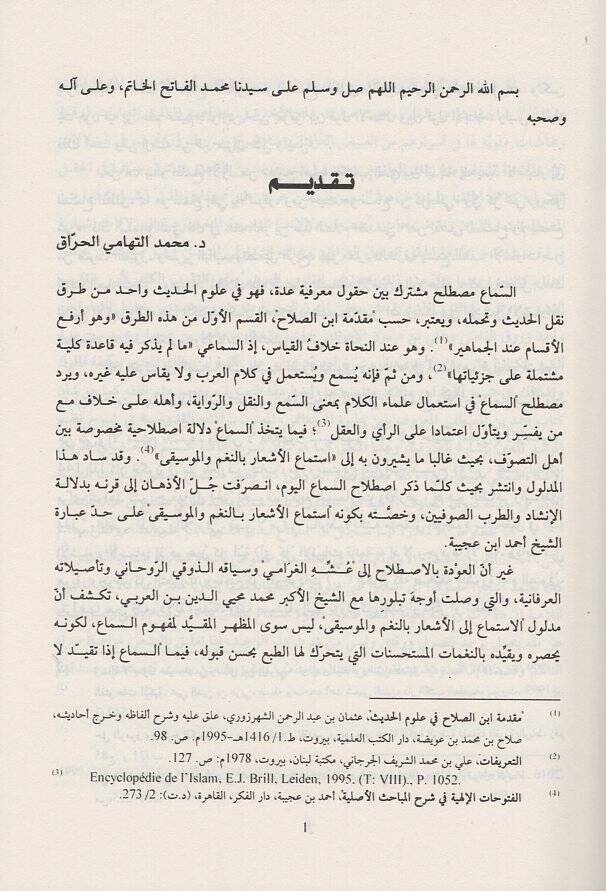 بسم الله الرحمن الرحيم اللهم صل وسلم على سيدنا محمد الفاتح الخاتم، وعلى آله
وصحبه
تقديم
د. محمد التهامي الحرّاق
السّماع مصطلح مشترك بين حقول معرفية عدة، فهو في علوم الحديث واحد من طرق
نقل الحديث وتحمله، ويعتبر، حسب "مقدّمة ابن الصلاح"، القسم الأوّل من هذه الطرق «وهو أرفع
الأقسام عند الجماهير»(1). وهو عند النحاة خلافُ القياس، إذ السماعي «ما لم يذكر فيه قاعدة كلية
مشتملة على جزئياتها»(2)، ومن ثمّ فإنه يُسمع ويُستعمل في كلام العرب ولا يقاس عليه غيره، ويرد
مصطلح "السماع" في استعمال علماء الكلام بمعنى السّمع والنقل والرواية، وأهله على خلاف مع
من يفسِّر ويتأوّل اعتمادا على الرأي والعقل(3)؛ فيما يتخذ السماع دلالة اصطلاحية مخصوصة بين
أهل التصوّف، بحيث غالبا ما يشيرون به إلى «استماع الأشعار بالنغم والموسيقى»(4). وقد ساد هذا
المدلول وانتشر بحيث كلّما ذكر اصطلاح السماع اليوم، انصرفت جُلّ الأذهان إلى قرنه بدلالة
الإنشاد والطرب الصوفيين، وخصّته بكونه "استماع الأشعار بالنغم والموسيقى" على حد عبارة
الشيخ أحمد ابن عجيبة.
غير أنّ العودة بالاصطلاح إلى عُشّه الغرامي وسياقه الذوقي الرّوحاني وتأصيلاته
العرفانية، والتي وصلت أوجهَ تبلورها مع الشيخ الأكبر محمد محيي الدين بن العربي، تكشف أنّ
مدلول "الاستماع إلى الأشعار بالنغم والموسيقى" ليس سوى المظهر المقيَّد لمفهوم السماع، لكونه
يحصره ويقيّده بالنغمات المستحسنات التي يتحرّك لها الطبع بحسن قبوله، فيما السماع إذا تقيد لا
(1) "مقدمة ابن الصلاح في علوم الحديث"، عثمان بن عبد الرحمن الشهرزوري، علق عليه وشرح ألفاظه وخرج أحاديثه،
صلاح بن محمد بن عويضة، دار الكتب العلمية، بيروت، ط.1/ 1416هـ-1995م، ص. 98.
(2) "التعريفات"، علي بن محمد الشريف الجرجاني، مكتبة لبنان، بيروت، 1978م: ص. 127.
(3) Encyclopédie de l'Islam, E.J. Brill, Leiden, 1995. (T: VIII)., P. 1052.
(4) "الفتوحات الإلهية في شرح المباحث الأصلية"، أحمد بن عجيبة، دار الفكر، القاهرة، (د.ت): 2/ 273.
1